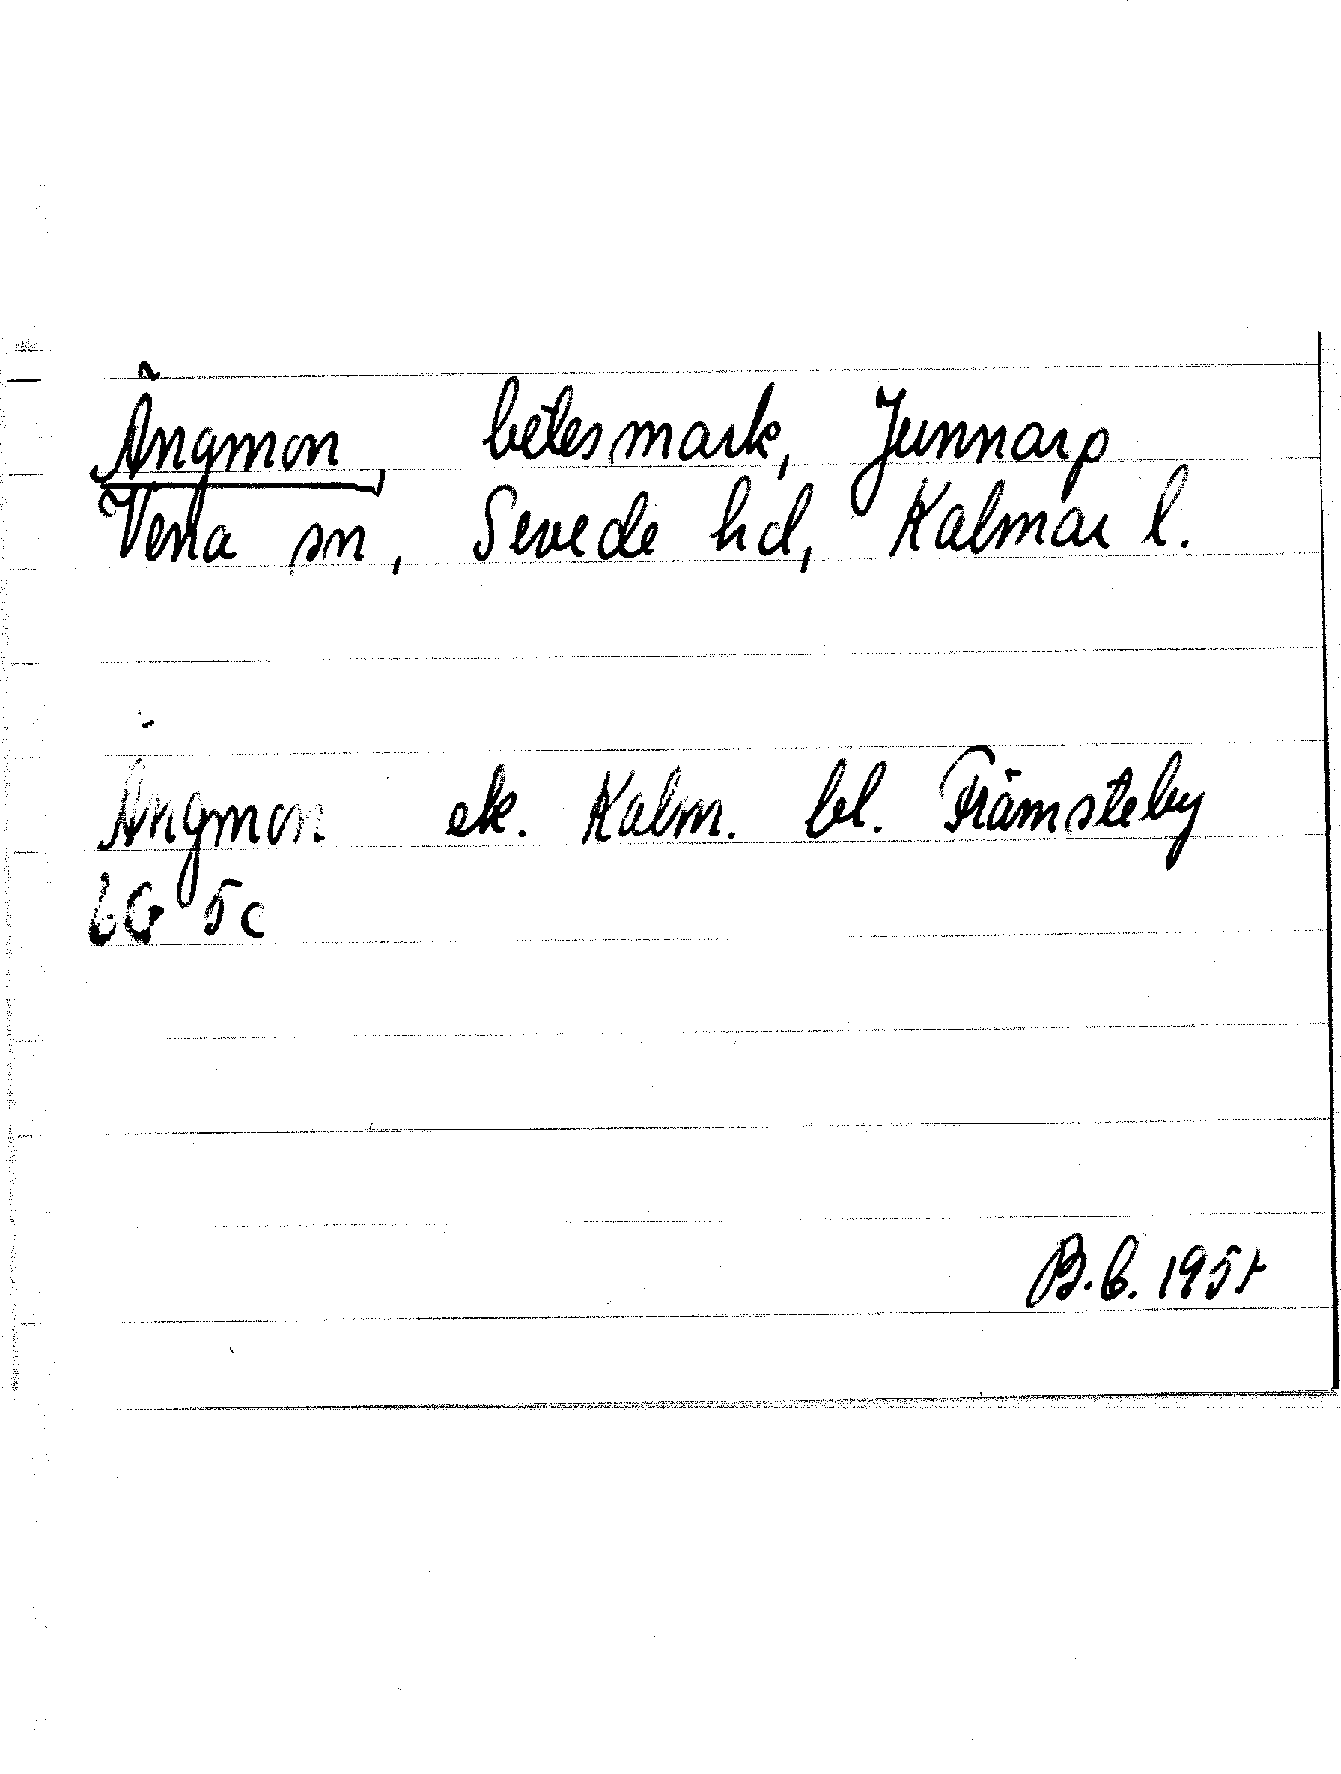 Ängmon, betesmark, Junnarp
Vena sn, Sevede hd, Kalmar l.
Ängmon ek. Kalm. bl. Främsteby
6G 5c
B.G. 195